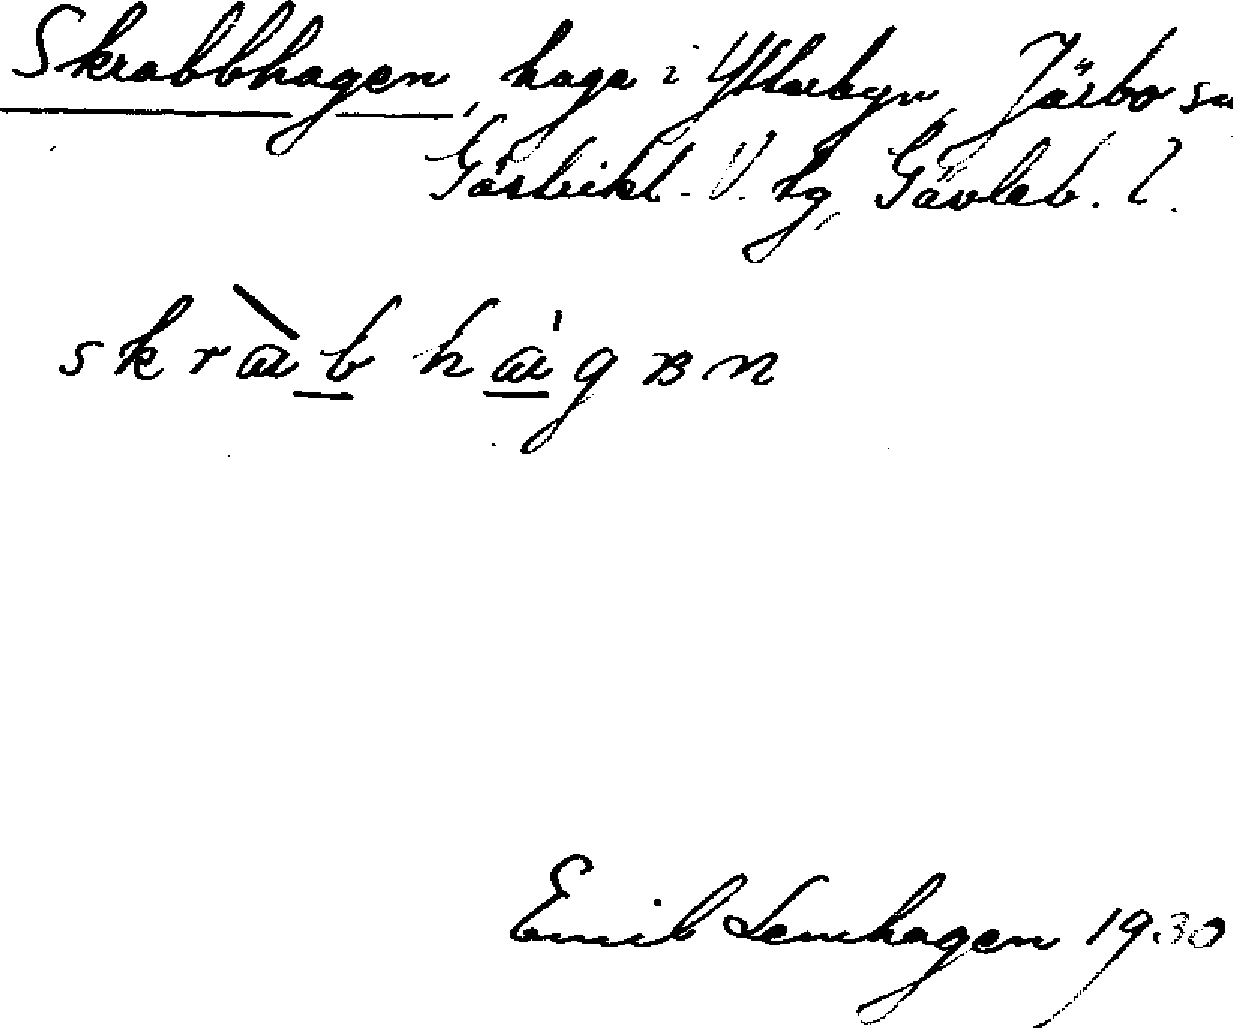 Skrabbhagen, haga i Ytterbyn, Järbo sn
Gästrikl. V. tg, Gävleb. l.
skràb hágɐn
Emil Lenhagen 1930